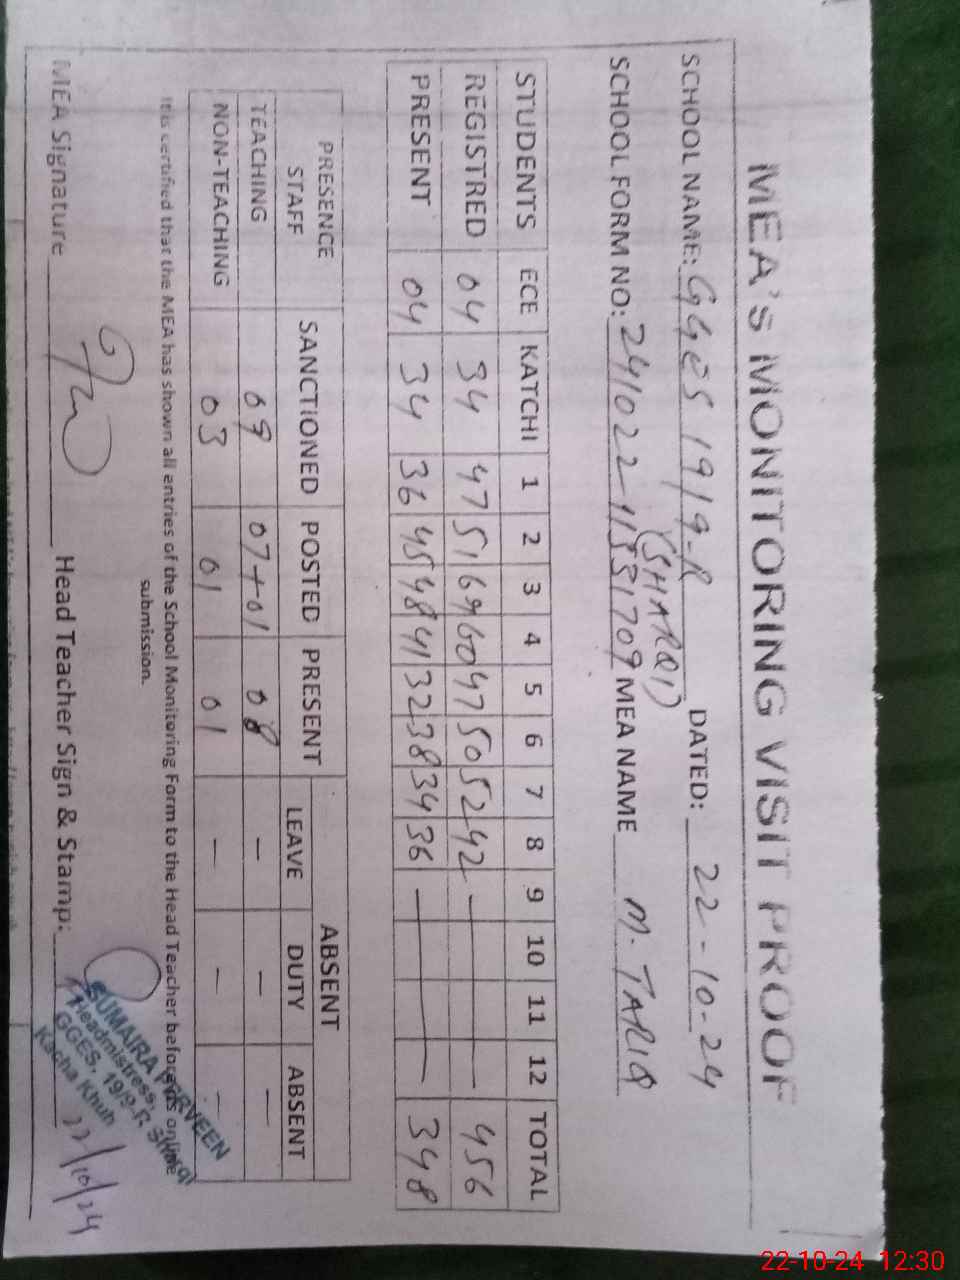 MEA's MONITORING VISIT PROOF
SCHOOL NAME: GGES 19/9-R (SHARQI) DATED: 22-10-24
SCHOOL FORM NO: 241022-1331709 MEA NAME M. TARIQ
STUDENTS ECE KATCHI 1 2 3 4 5 6 7 8 9 10 11 12 TOTAL
REGISTRED 04 34 47 51 69 60 47 50 52 42 — 456
PRESENT 04 34 36 45 48 41 32 38 34 36 — 348
PRESENCE STAFF SANCTIONED POSTED PRESENT ABSENT
LEAVE DUTY ABSENT
TEACHING 09 07+01 08 — — —
NON-TEACHING 03 01 01 — — —
It is certified that the MEA has shown all entries of the School Monitoring Form to the Head Teacher before its online
submission.
MEA Signature Head Teacher Sign & Stamp:
SUMAIRA PARVEEN
Headmistress,
GGES, 19/9-R Sharqi
Kacha Khuh
22/10/24
22-10-24 12:30